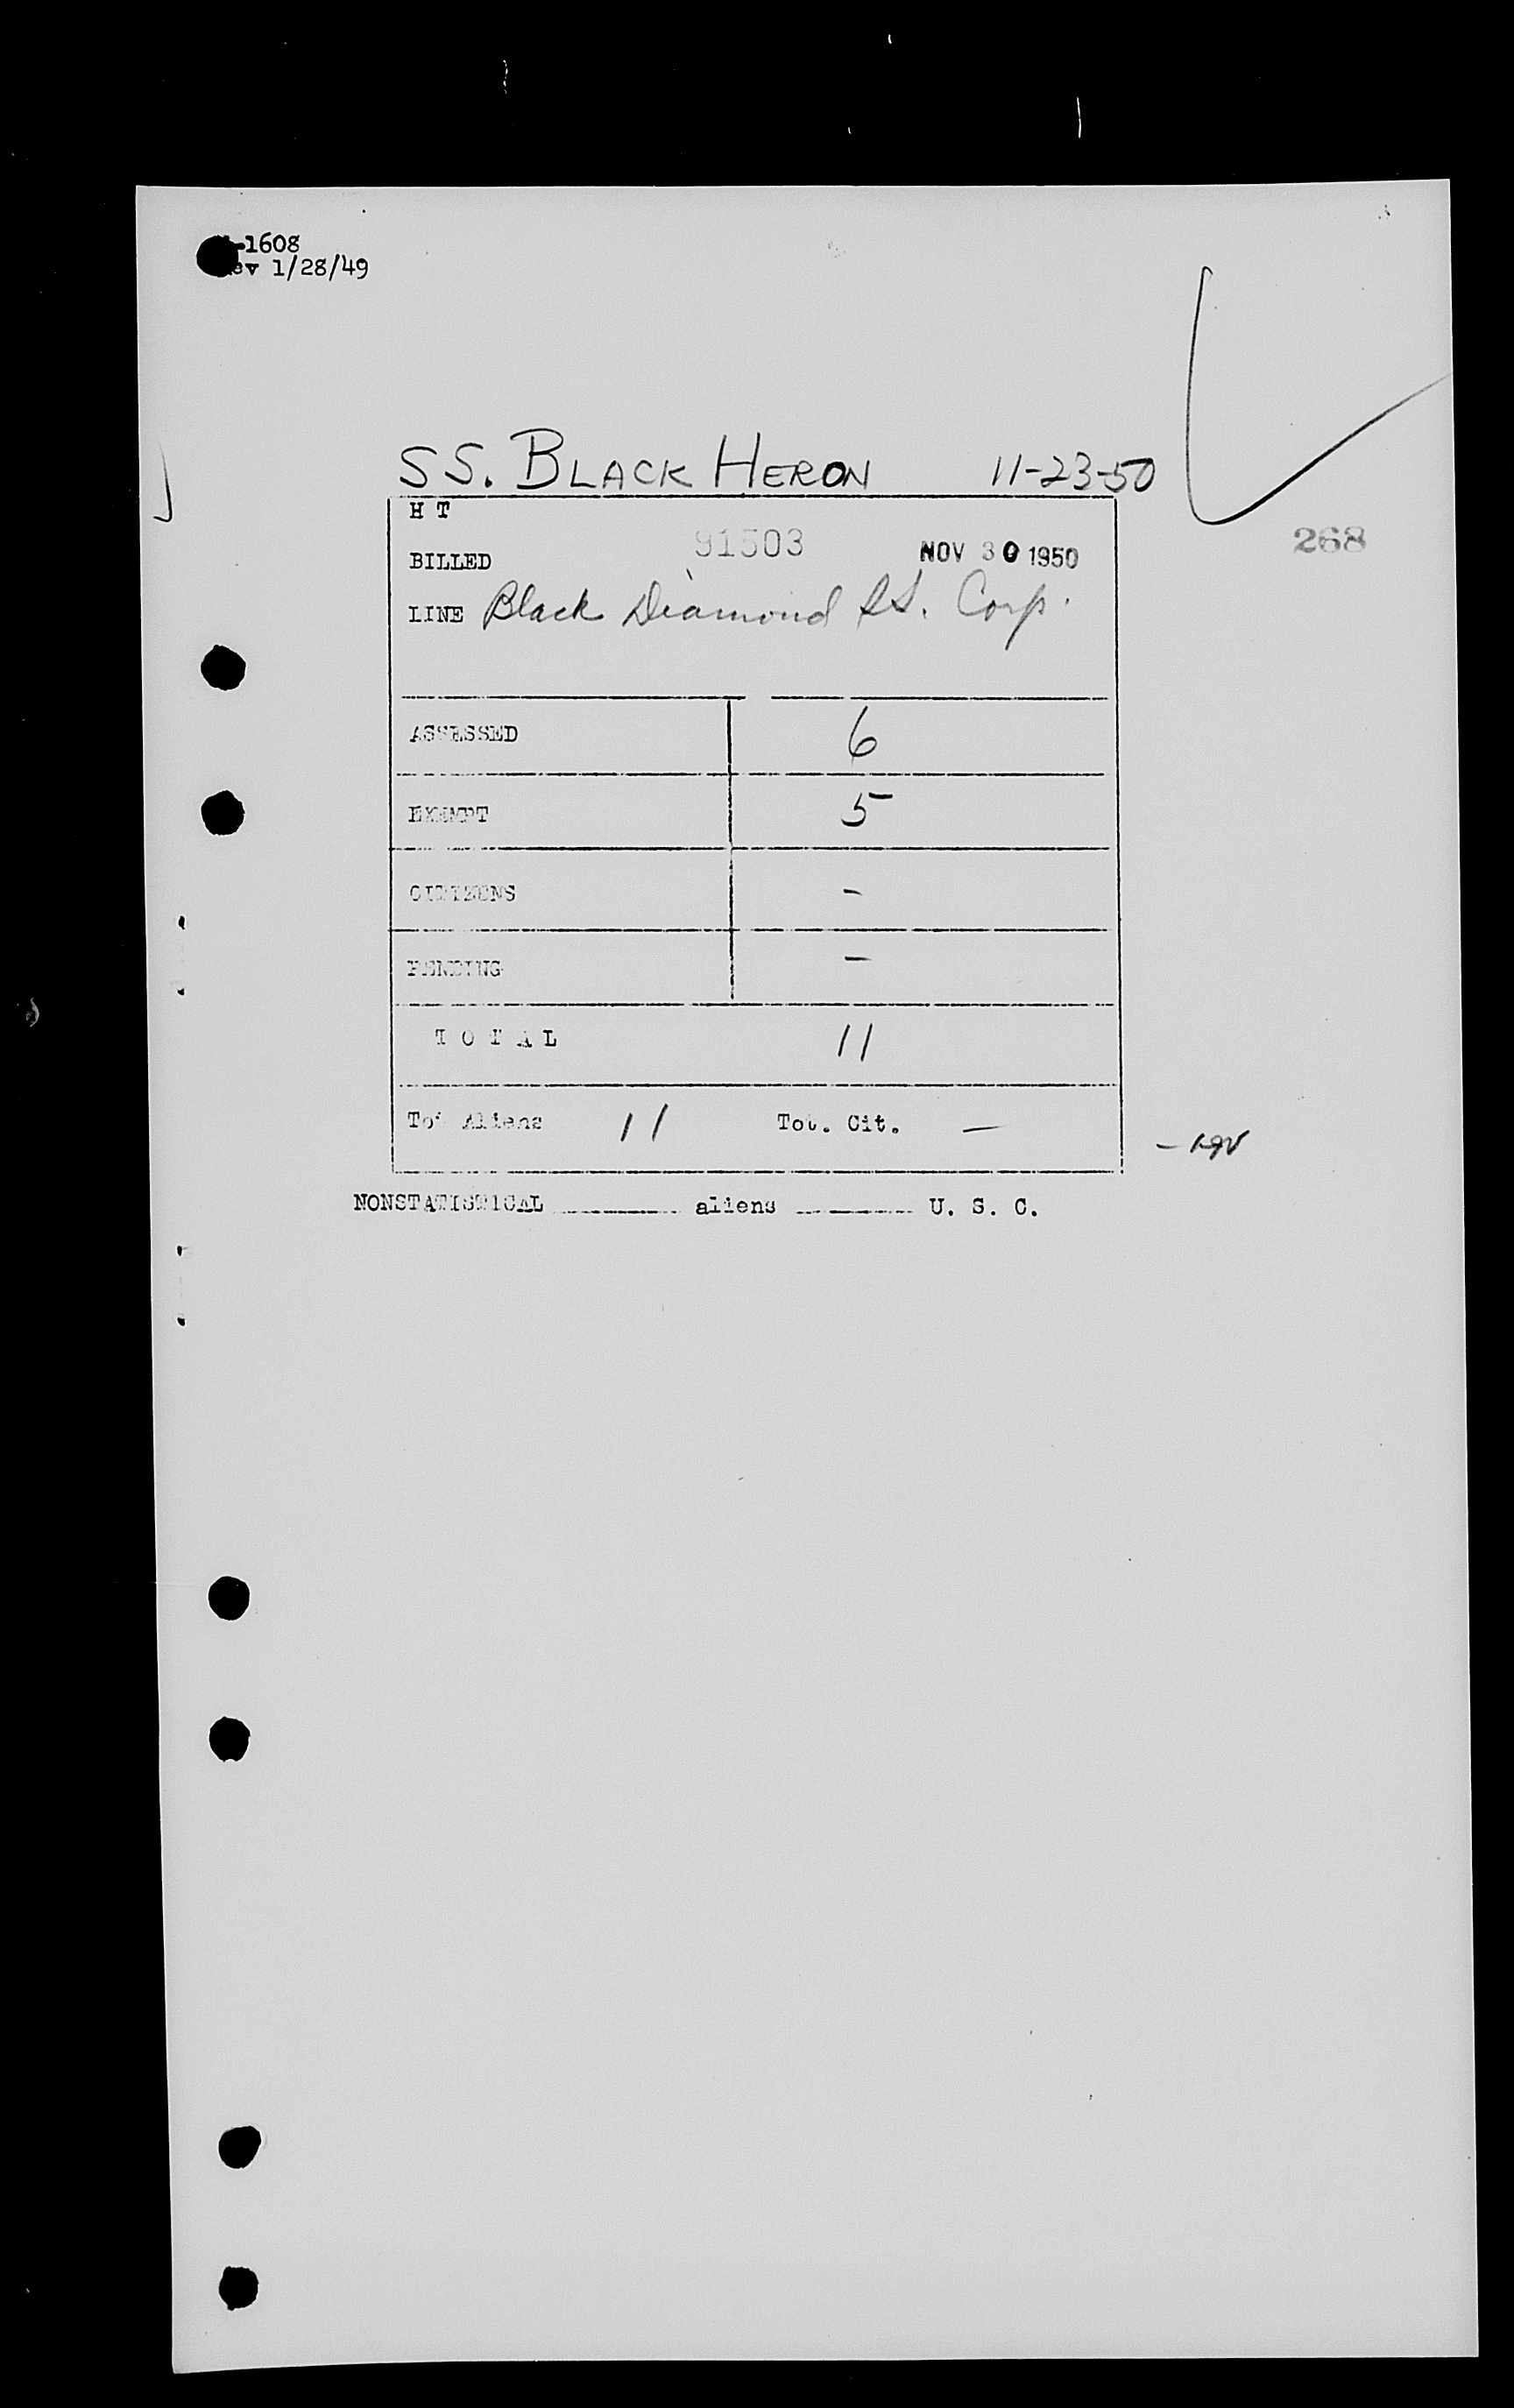 -1608
ev 1/28/49
SS. BLACK HERON 11-23-50
H T
268
BILLED 91503 NOV 30 1950
LINE Black Diamond SS. Corp.
ASSESSED 6
EXEMPT 5
CITIZENS -
PENDING -
T O T A L 11
Tot Aliens 11 Tot. Cit. —
NONSTATISTICAL ________ aliens ________ U. S. C.